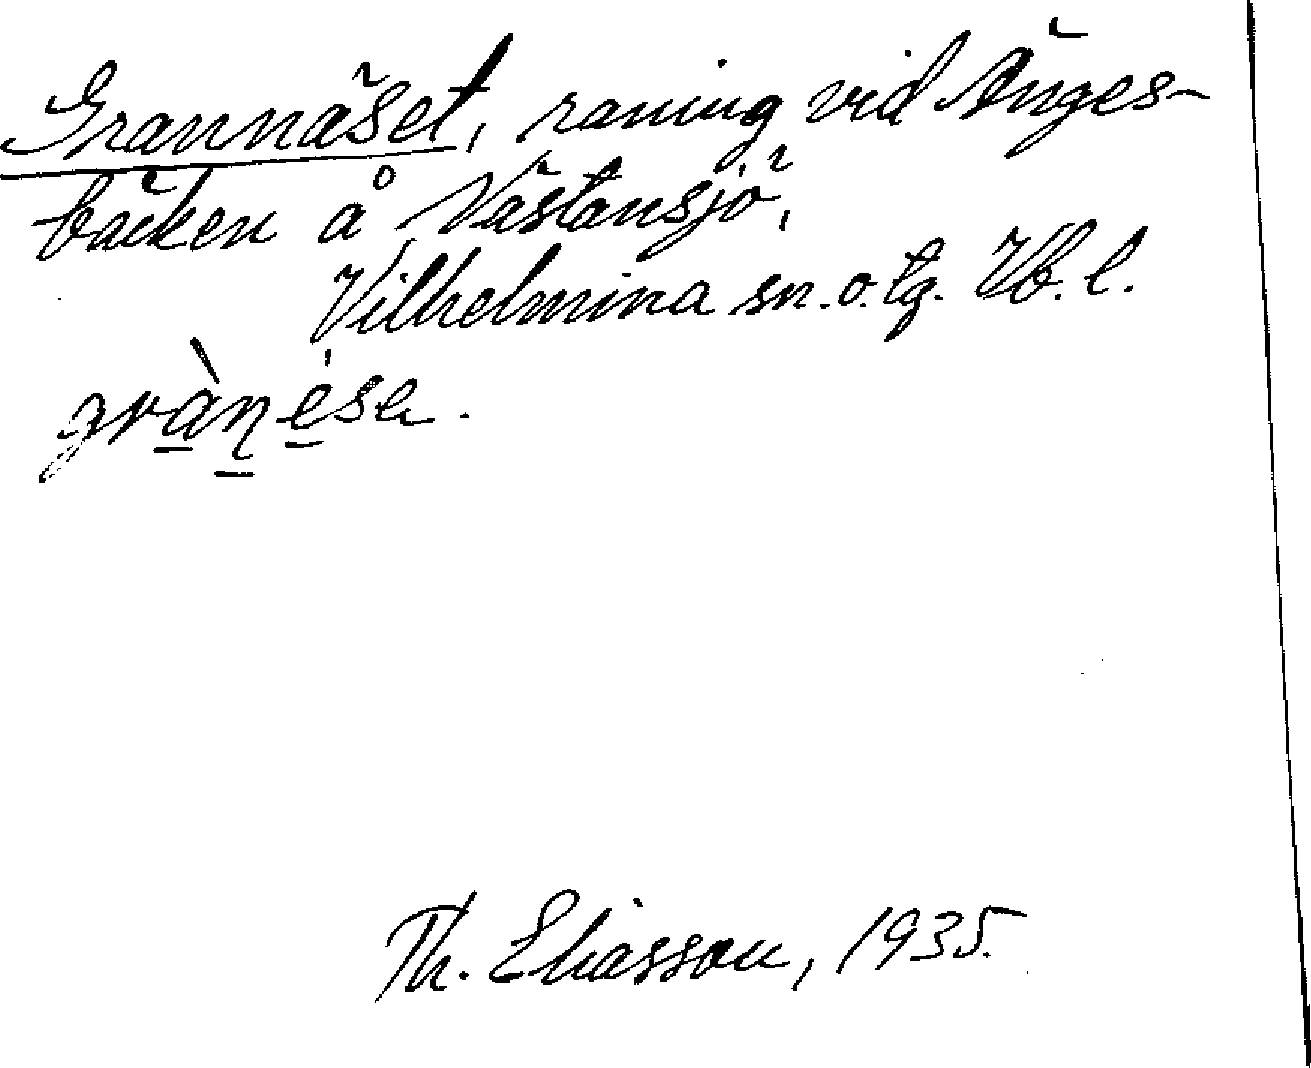 Grannäset, raning vid Änges-
bäcken å Västansjö,
Vilhelmina sn. o. tg. Vb. l.
grànésa.
Th. Eliasson, 1935.